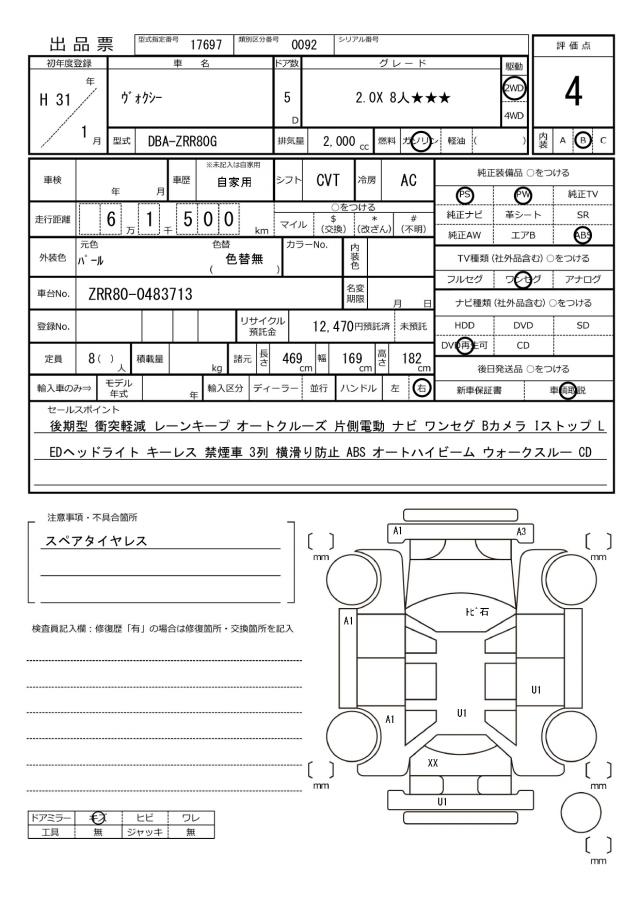 出品票 型式指定番号 17697 類別区分番号 0092 シリアル番号
評価点
4
初年度登録 車 名 ドア数 グレード 駆動
H 31 年 ヴォクシー 5 D 2.0X 8人★★★ 2WD
4WD
1 月 型式 DBA-ZRR80G 排気量 2,000 cc 燃料 ガソリン 軽油 ( ) 内装 A B C
車検 年 月 車歴 ※未記入は自家用 自家用 シフト CVT 冷房 AC
走行距離 6 万 1 千 5 0 0 km
○をつける
マイル $ (交換) * (改ざん) # (不明)
外装色 元色 パール 色替 ( 色替無 ) カラーNo. 内装色
車台No. ZRR80-0483713 名変期限 月 日
登録No. リサイクル預託金 12,470円預託済 未預託
定員 8( ) 人 積載量 kg 諸元 長さ 469 cm 幅 169 cm 高さ 182 cm
輸入車のみ⇒ モデル年式 年 輸入区分 ディーラー 並行 ハンドル 左 右
純正装備品 ○をつける
PS PW 純正TV
純正ナビ 革シート SR
純正AW エアB ABS
TV種類 (社外品含む) ○をつける
フルセグ ワンセグ アナログ
ナビ種類 (社外品含む) ○をつける
HDD DVD SD
DVD再生可 CD
後日発送品 ○をつける
新車保証書 車輌取説
セールスポイント
後期型 衝突軽減 レーンキープ オートクルーズ 片側電動 ナビ ワンセグ Bカメラ Iストップ L
EDヘッドライト キーレス 禁煙車 3列 横滑り防止 ABS オートハイビーム ウォークスルー CD
注意事項・不具合箇所
スペアタイヤレス
検査員記入欄：修復歴「有」の場合は修復箇所・交換箇所を記入
ドアミラー キズ ヒビ ワレ
工具 無 ジャッキ 無
A1 A3
[ ] mm [ ] mm
トビ石
A1
U1
U1
A1
XX
[ ] mm [ ] mm
U1
[ ] mm